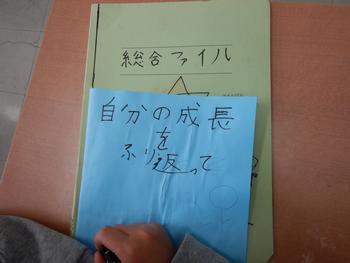 総合ファイル
自分の成長
を
ふり返って